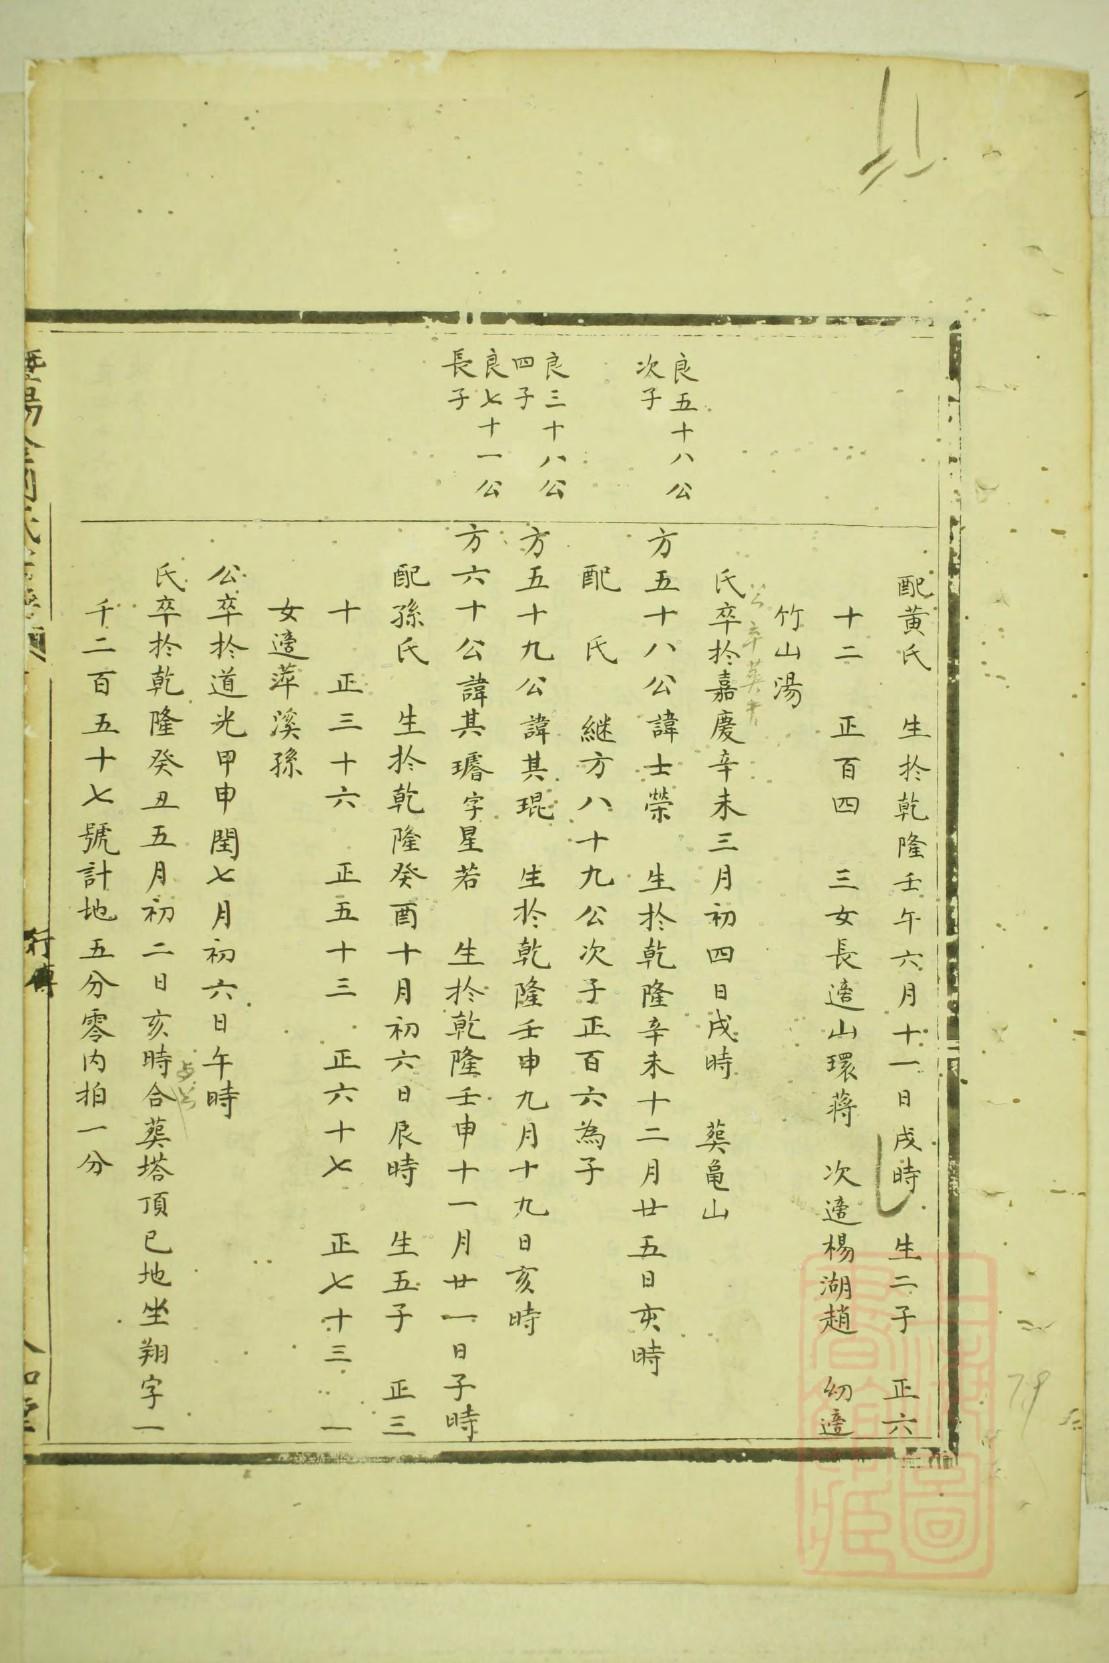 配黄氏 生於乾隆壬午六月十一日戌時 生二子 正六
十二 正百四 三女長適山環蔣 次適楊湖趙 幼適
竹山湯
公卒葬
氏卒於嘉慶辛未三月初四日戌時 葬龜山
良五十八公
次子
方五十八公諱士榮 生於乾隆辛未十二月廿五日亥時
配 氏 継方八十九公次子正百六為子
良三十八公
四子
方五十九公諱其琨 生於乾隆壬申九月十九日亥時
良七十一公
長子
方六十公諱其璿字星若 生於乾隆壬申十一月廿一日子時
配孫氏 生於乾隆癸酉十月初六日辰時 生五子 正三
十 正三十六 正五十三 正六十七 正七十三 一
女適萍溪孫
公卒於道光甲申閏七月初六日午時
氏卒於乾隆癸丑五月初二日亥時合葬塔頂巳地坐翔字一
千二百五十七號計地五分零内拍一分
行傳